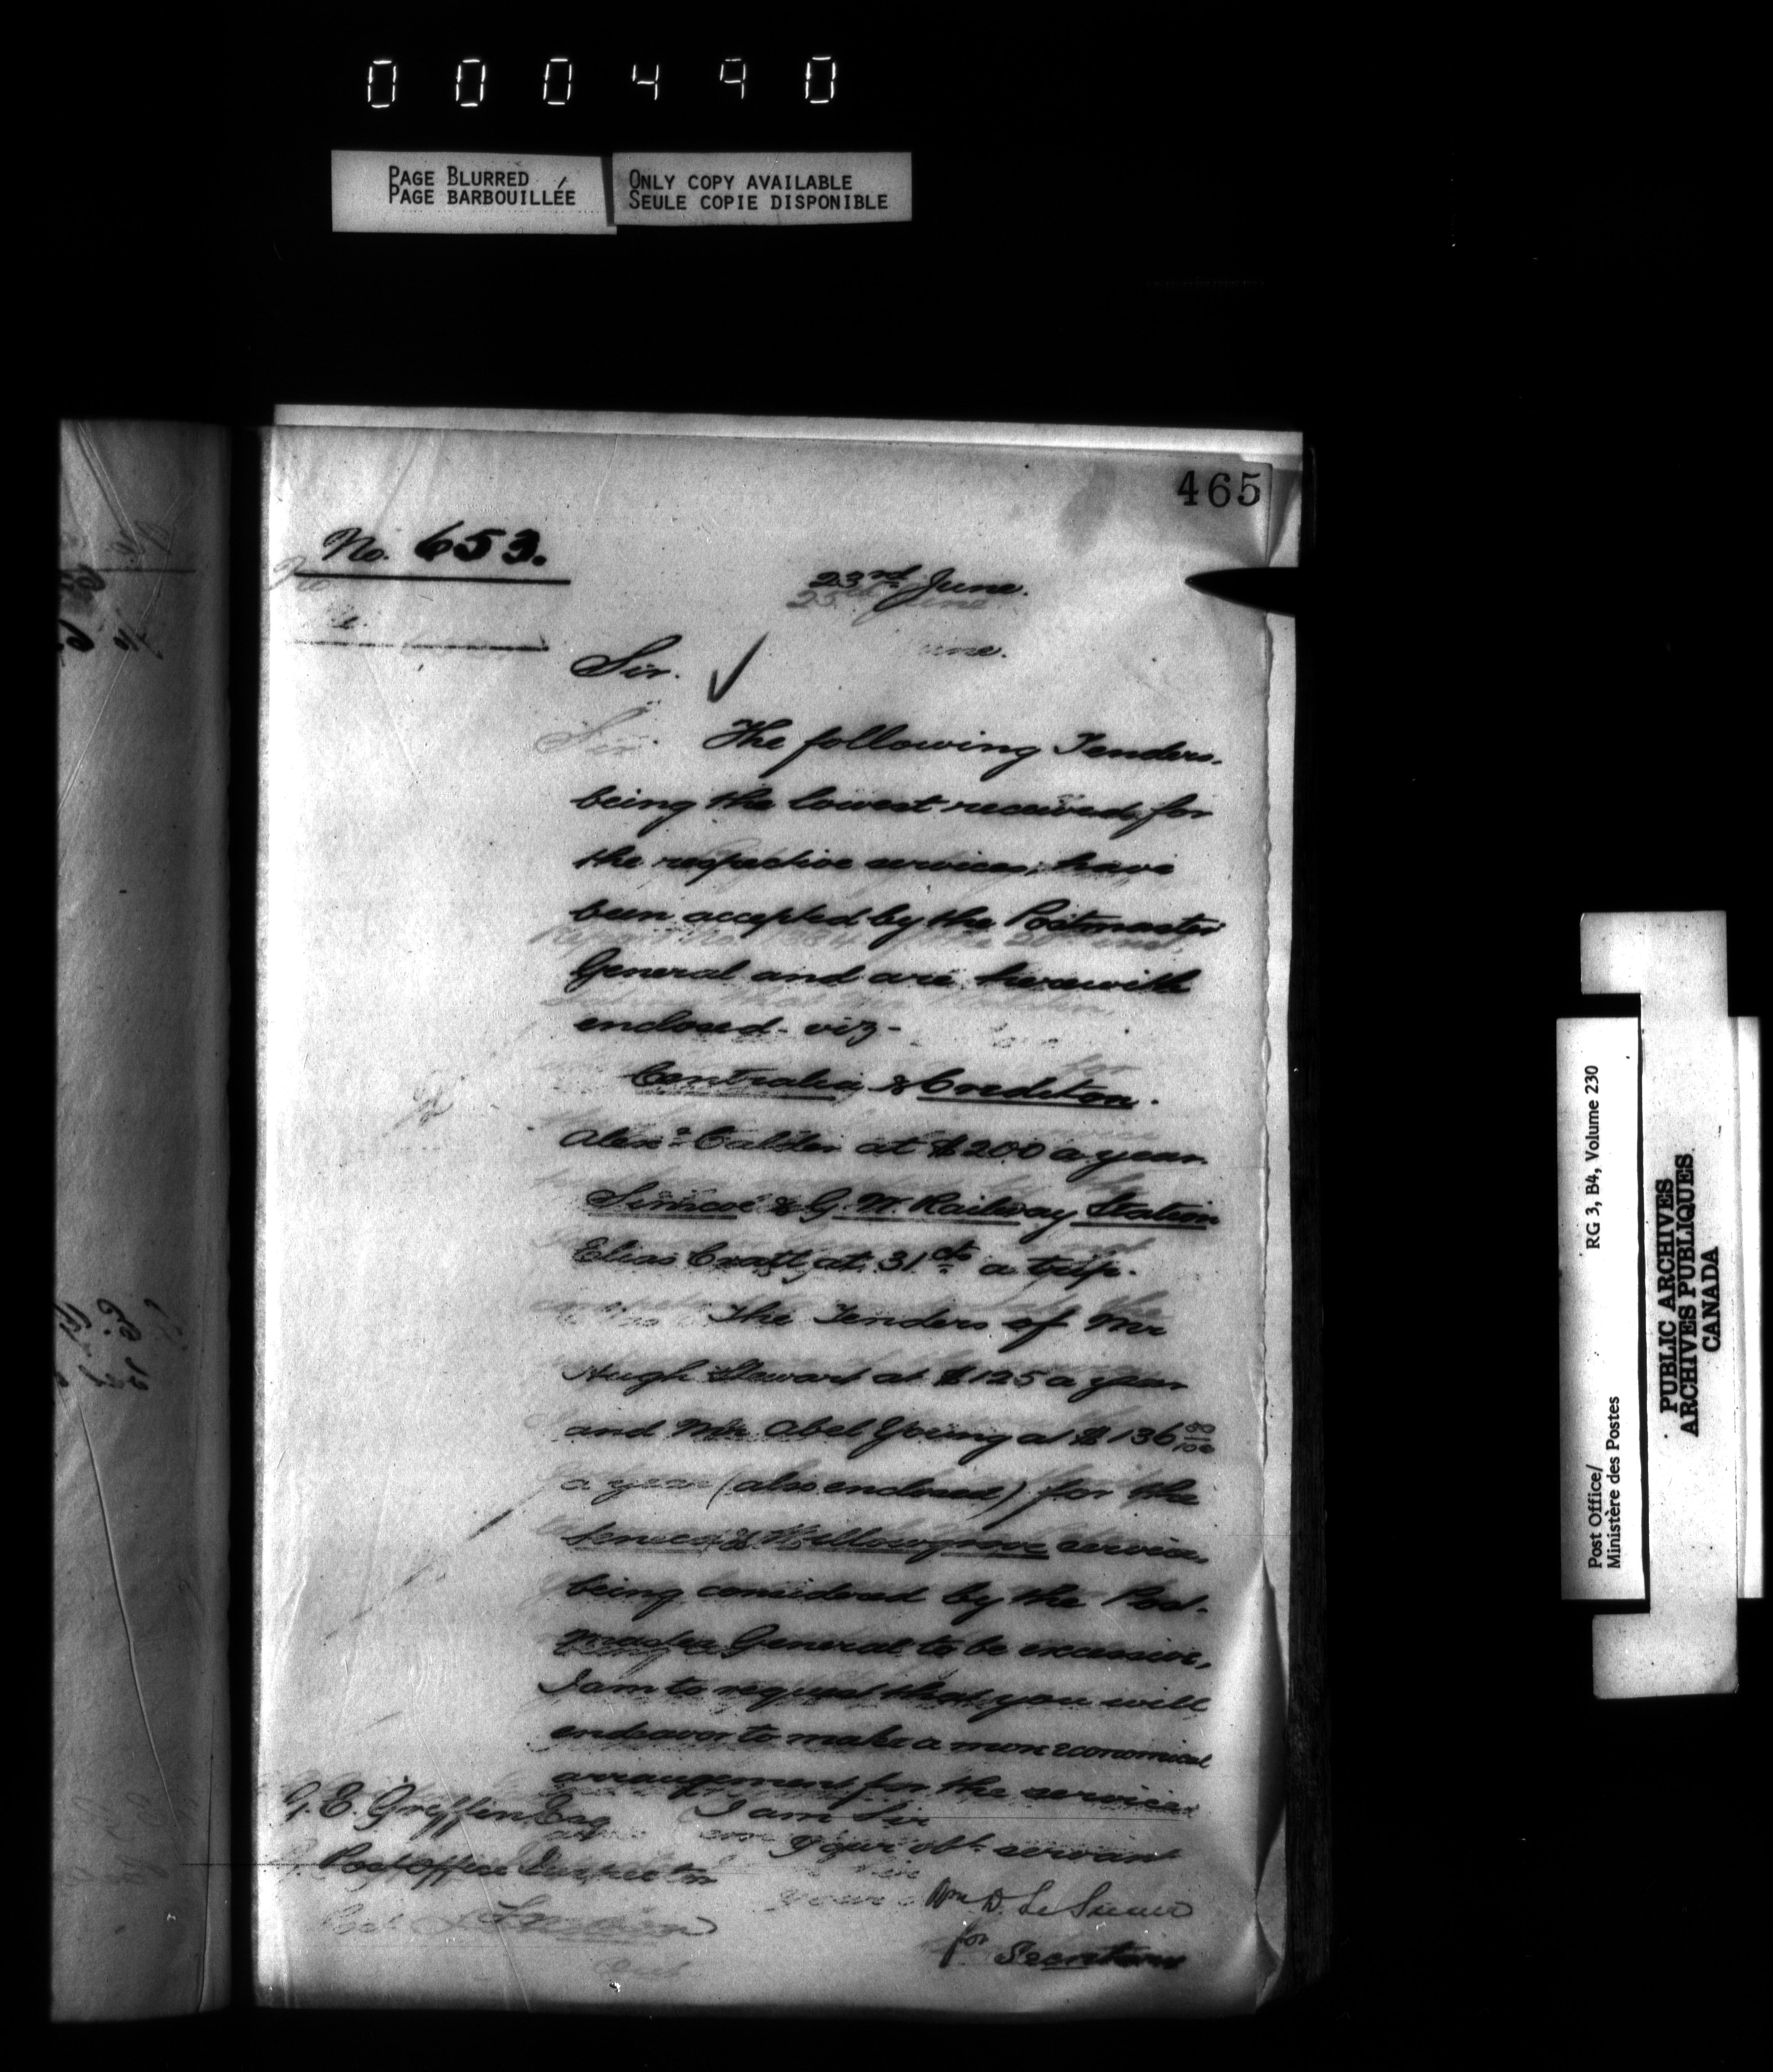 000490
PAGE BLURRED
PAGE BARBOUILLÉE
ONLY COPY AVAILABLE
SEULE COPIE DISPONIBLE
465
No. 653.
23rd June.
Sir.
The following Tenders.
being the lowest received for
the respective services, have
been accepted by the Postmaster
General and are herewith
enclosed - viz -
Centralia & Crediton.
Alexr Calder at $200 a year
Simcoe & G. W. Railway Station
Elias Cratt at 31 cts a trip.
The Tenders of Mr
Hugh Stewart at $125 a year
and Mr Abel Young at $136
a year (also enclosed) for the
Seneca & Willowgrove service,
being considered by the Post-
master General to be excessive,
I am to request that you will
endeavor to make a more economical
arrangement for the service.
I am Sir
Your obt. servant
Wm D. LeSueur
for Secretary
G. E. Griffin Esq
Post Office Inspector
London
RG 3, B4, Volume 230
Post Office/
Ministère des Postes
PUBLIC ARCHIVES
ARCHIVES PUBLIQUES
CANADA